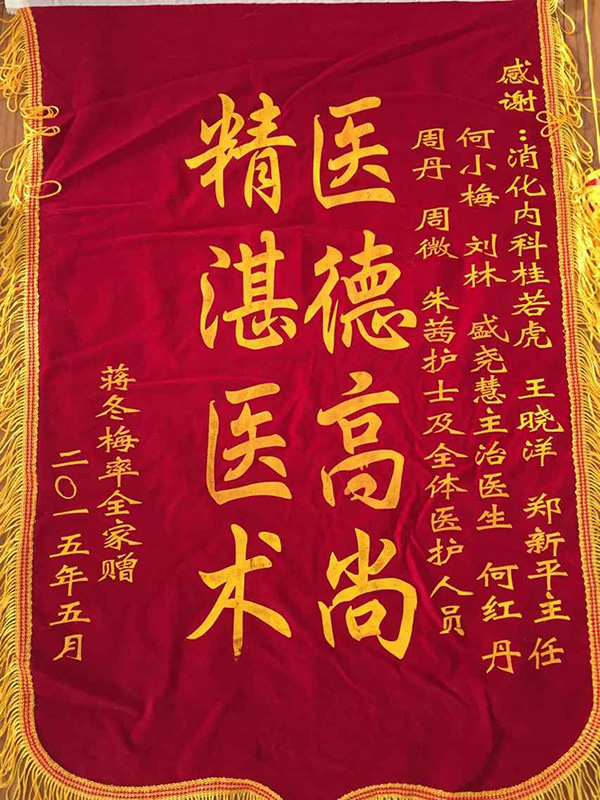 感谢：消化内科桂若虎 王晓洋 郑新平主任
何小梅 刘林 盛尧慧主治医生 何红丹
周丹 周微 朱茜护士及全体医护人员
医德高尚
精湛医术
蒋冬梅率全家赠
二〇一五年五月